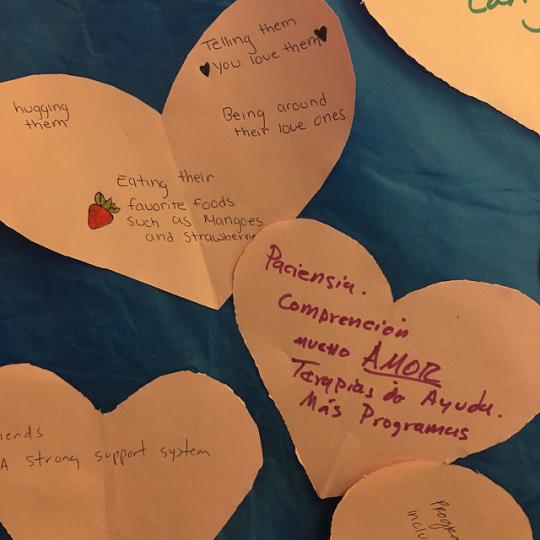 Telling them
you love them
hugging
them
Being around
their love ones
Eating their
favorite foods
such as Mangoes
and strawberrie
Paciensia.
Comprención
mucho AMOR
Terapias de Ayuda.
Más Programas
A strong support system